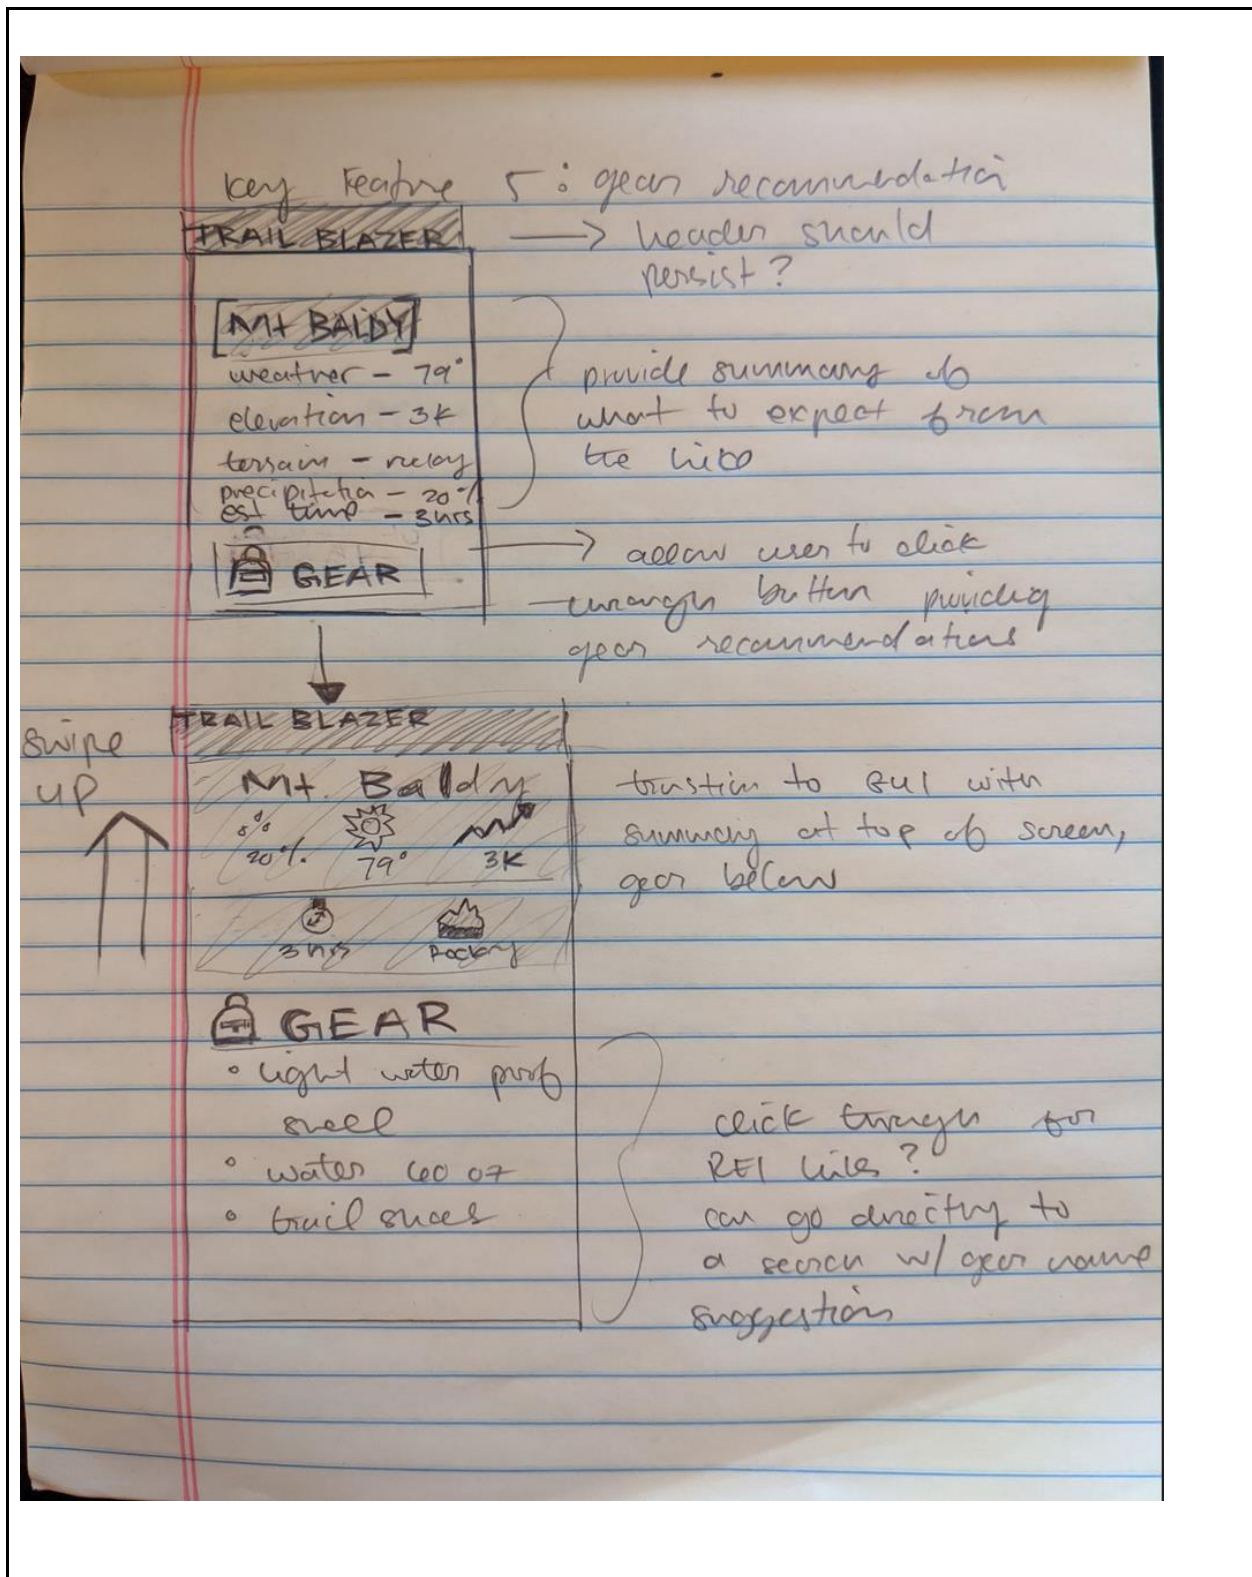 Key Feature 5: gear recommendation
TRAIL BLAZER
→ header should
persist?
Mt BALDY
weather - 79°
elevation - 3K
terrain - rocky
precipitation - 20%
est time - 3hrs
provide summary of
what to expect from
the hike
GEAR
→ allow user to click
through button providing
gear recommendations
swipe
up
TRAIL BLAZER
Mt. Baldy
20% 79° 3K
3 hrs Rocky
to GUI with
summary at top of screen,
gear below
GEAR
• light water proof
shell
• water 60 oz
• trail shoes
click through for
REI links?
can go directly to
a search w/ gear name
suggestion